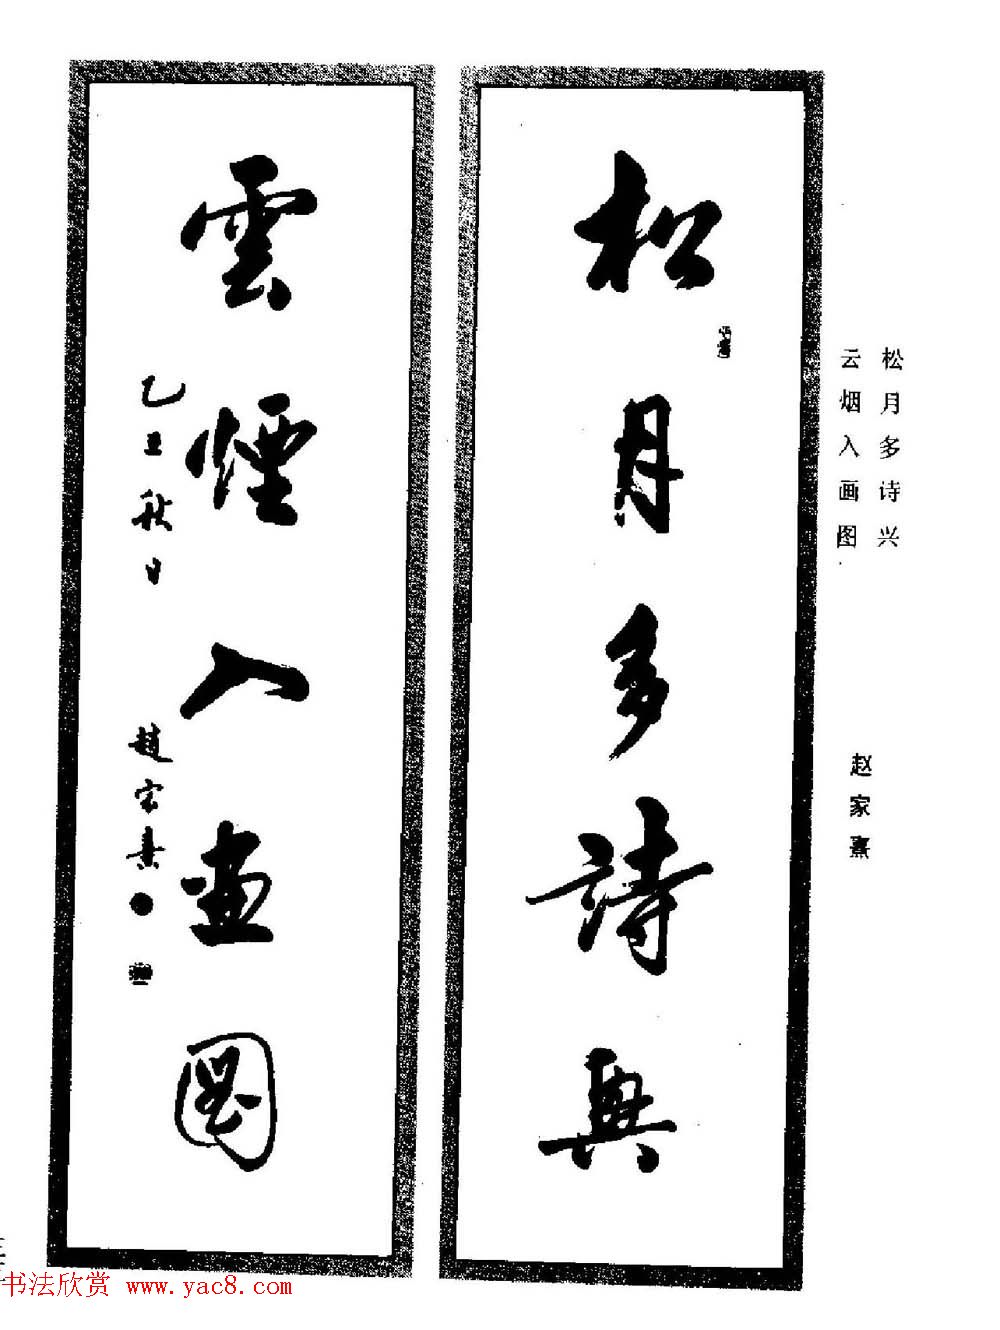 松月多诗兴
云烟入画图
赵家熹
松月多詩興
雲煙入畫圖
乙丑秋日
趙家熹
书法欣赏 www.yac8.com